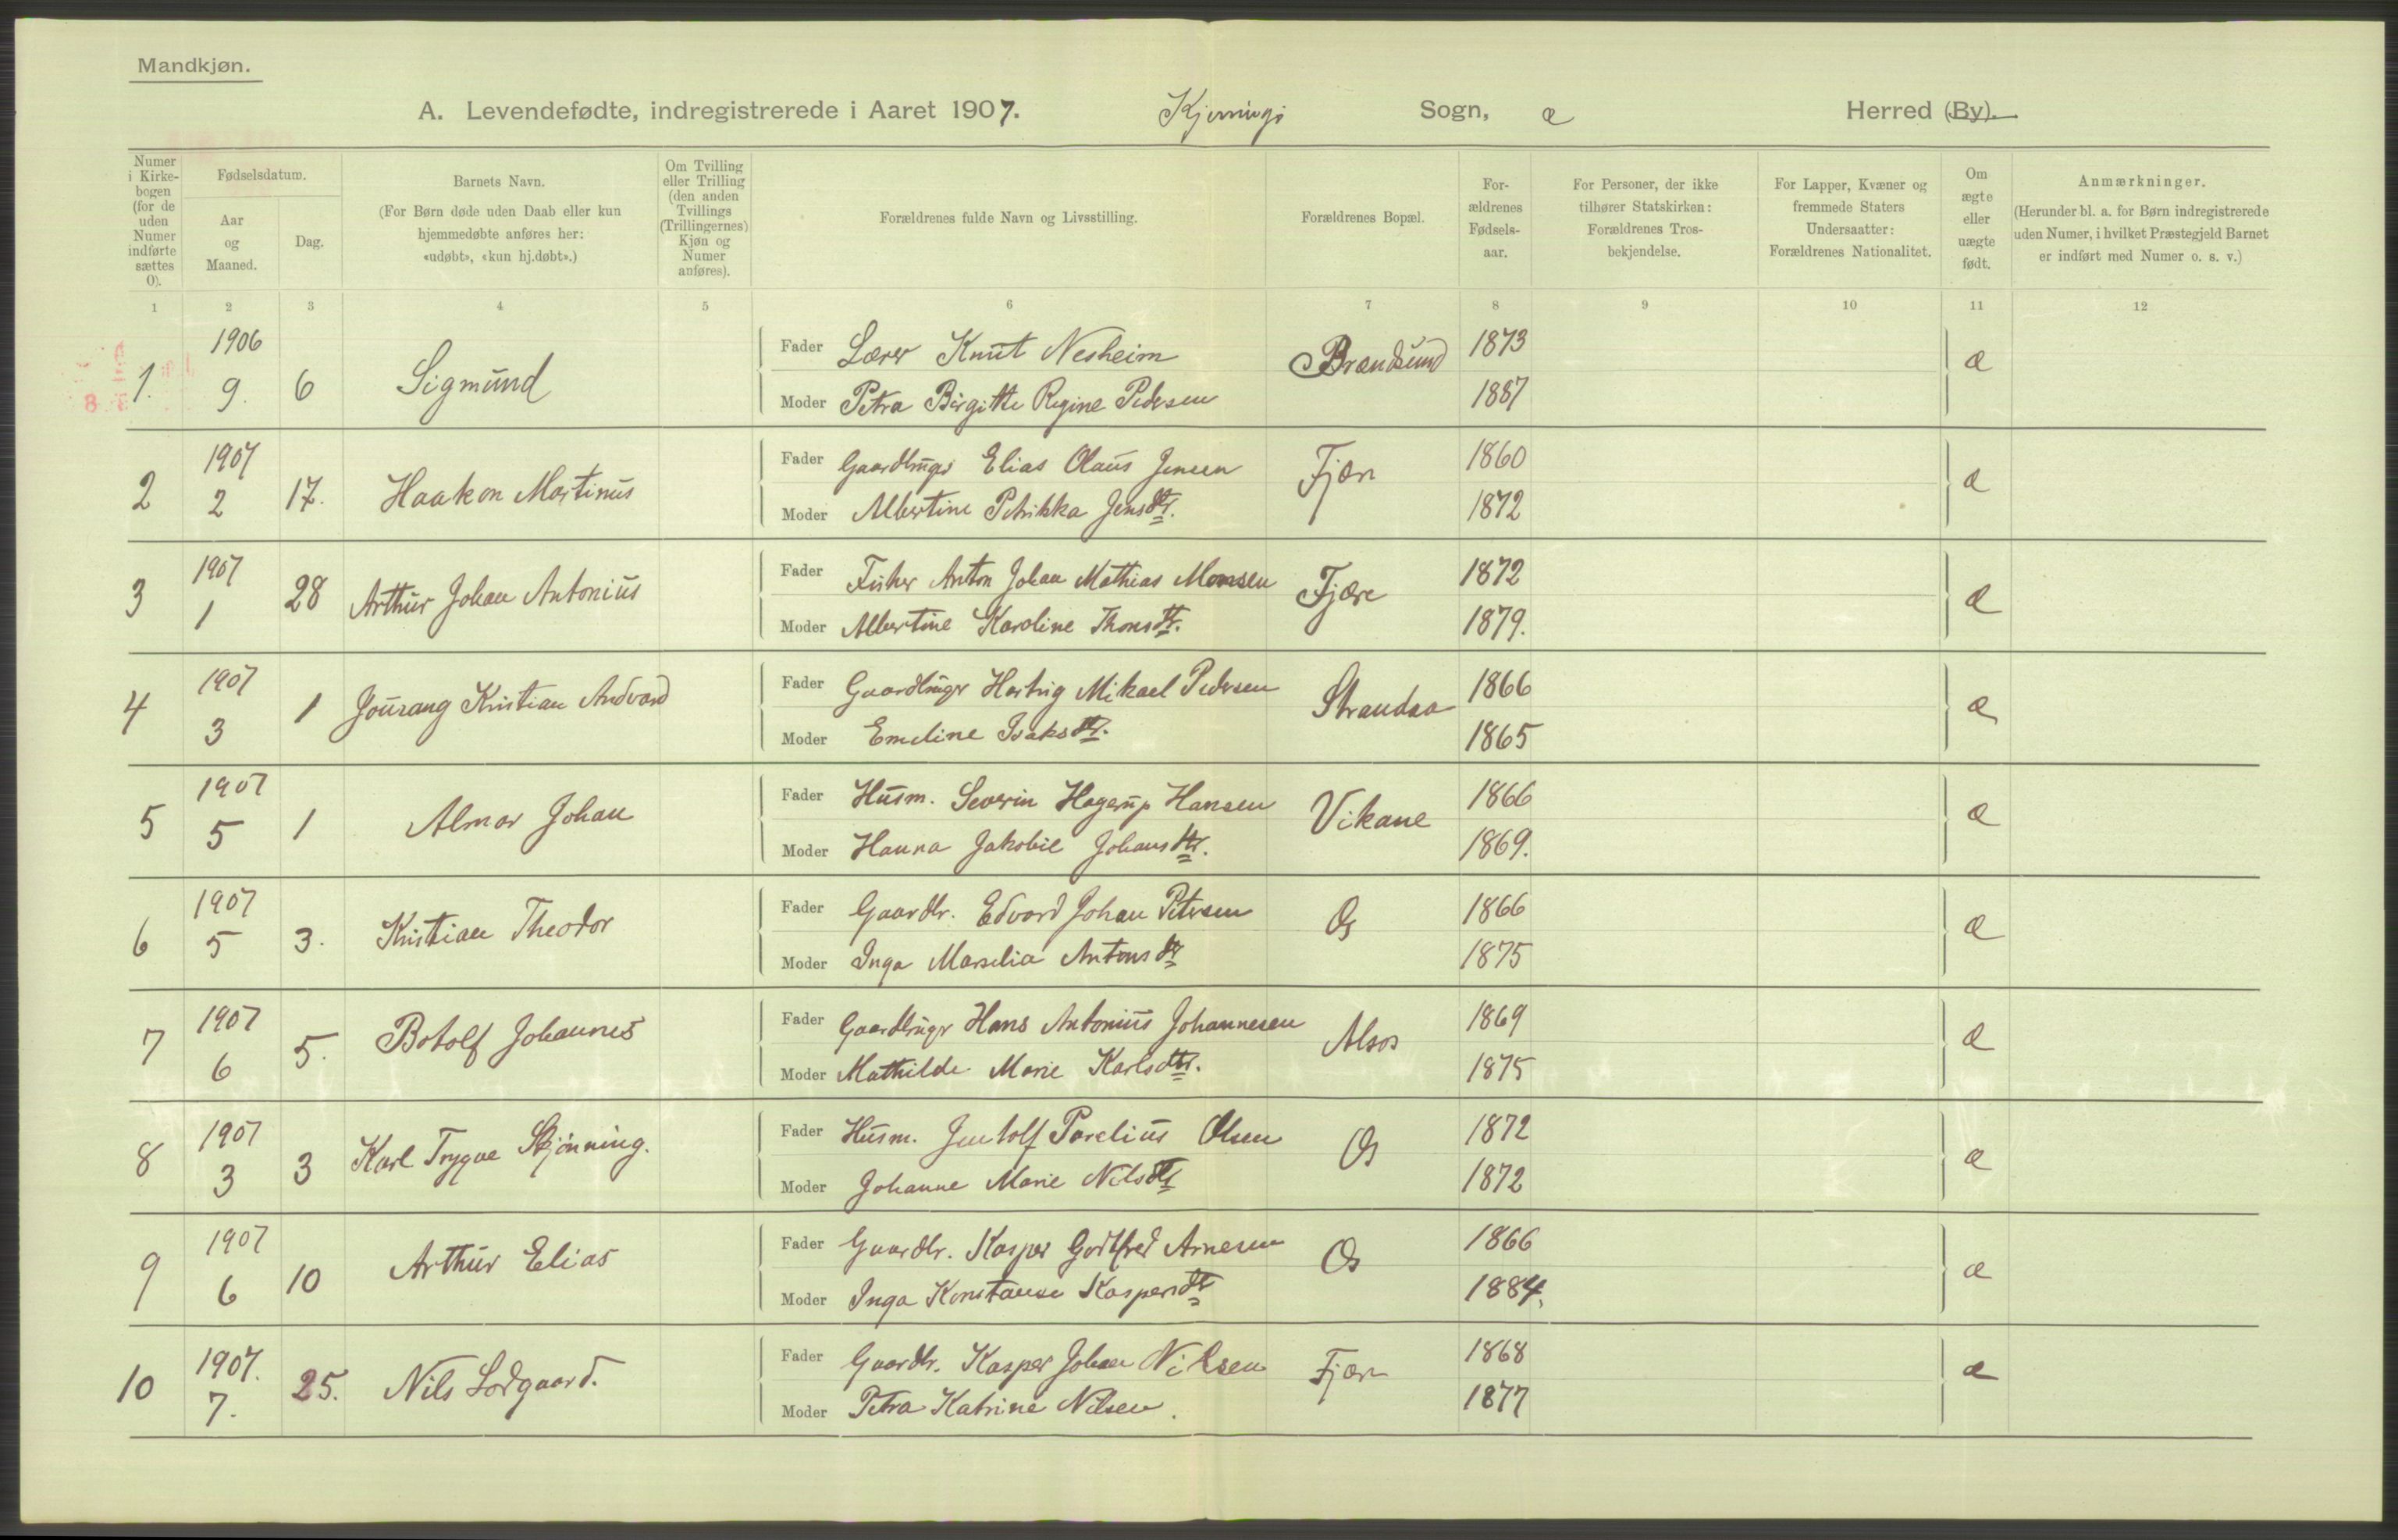 Mandkjøn.
A. Levendefødte, indregistrerede i Aaret 1907. Kjerringø Sogn, æ Herred (By).
Numer i Kirkebogen (for de uden Numer indførte sættes 0).
Fødselsdatum.
Aar og Maaned.
Dag.
Barnets Navn.
(For Børn døde uden Daab eller kun hjemmedøbte anføres her: «udøbt», «kun hj.døbt».)
Om Tvilling eller Trilling (den anden Tvillings (Trillingernes) Kjøn og Numer anføres).
Forældrenes fulde Navn og Livsstilling.
Forældrenes Bopæl.
Forældrenes Fødselsaar.
For Personer, der ikke tilhører Statskirken: Forældrenes Trosbekjendelse.
For Lapper, Kvæner og fremmede Staters Undersaatter: Forældrenes Nationalitet.
Om ægte eller uægte født.
Anmærkninger.
(Herunder bl. a. for Børn indregistrerede uden Numer, i hvilket Præstegjeld Barnet er indført med Numer o. s. v.)
1 2 3 4 5 6 7 8 9 10 11 12
1. 1906 9. 6 Sigmund Fader Lærer Knut Nesheim Brændsund 1873 æ
Moder Petra Birgitte Regine Pedersen 1887
2 1907 2 17. Haakon Martinus Fader Gaardbruger Elias Olaus Jensen Fjær 1860 æ
Moder Albertine Petrikka Jensdtr. 1872
3 1907 1 28 Arthur Johan Antonius Fader Fisker Anton Johan Mathias Monsen Fjære 1872 æ
Moder Albertine Karoline Thonsdtr. 1879.
4 1907 3 1 Jourang Kristian Andvard Fader Gaardbruger Hartvig Mikael Pedersen Strandaa 1866 æ
Moder Emeline Isaksdtr. 1865
5 1907 5 1 Almar Johan Fader Husm. Severin Hagerup Hansen Vikane 1866 æ
Moder Hanna Jakobie Johansdtr. 1869.
6 1907 5 3. Kristian Theodor Fader Gaardbr. Edvard Johan Petersen Os 1866 æ
Moder Inga Marselia Antonsdtr 1875
7 1907 6 5. Botolf Johannes Fader Gaardbruger Hans Antonius Johannesen Alsos 1869 æ
Moder Mathilde Marie Karlsdtr. 1875
8 1907 3 3 Karl Trygve Skjønning. Fader Husm. Jentolf Parelius Olsen Os 1872 æ
Moder Johanne Marie Nilsdtr 1872
9 1907 6 10 Arthur Elias Fader Gaardbr. Kasper Godtfred Arnesen Os 1866 æ
Moder Inga Konstanse Kaspersdtr 1884.
10 1907. 7. 25. Nils Lodgaard. Fader Gaardbr. Kasper Johan Nilsen Fjær 1868 æ
Moder Petra Katrine Nilsen. 1877